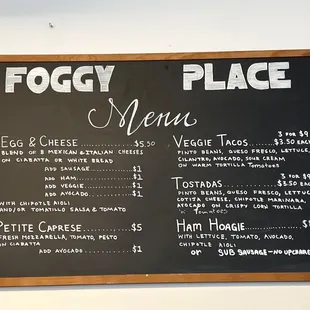 FOGGY PLACE
Menu
EGG & CHEESE $5.50
BLEND OF 3 MEXICAN & ITALIAN CHEESES
ON CIABATTA OR WHITE BREAD
ADD SAUSAGE $1
ADD HAM $1
ADD VEGGIE $1
ADD AVOCADO $1
WITH CHIPOTLE AIOLI
AND/OR TOMATILLO SALSA & TOMATO
PETITE CAPRESE $5
FRESH MOZZARELLA, TOMATO, PESTO
ON CIABATTA
ADD AVOCADO $1
3 FOR $9
VEGGIE TACOS $3.50 EACH
PINTO BEANS, QUESO FRESCO, LETTUCE,
CILANTRO, AVOCADO, SOUR CREAM
ON WARM TORTILLA TOMATOES
3 FOR $9
TOSTADAS $3.50 EACH
PINTO BEANS, QUESO FRESCO, LETTUCE
COTIJA CHEESE, CHIPOTLE MARINARA,
AVOCADO ON CRISPY CORN TORTILLA
TOMATOES
HAM HOAGIE
WITH LETTUCE, TOMATO, AVOCADO,
CHIPOTLE AIOLI
OR SUB SAUSAGE-NO UPCHARGE